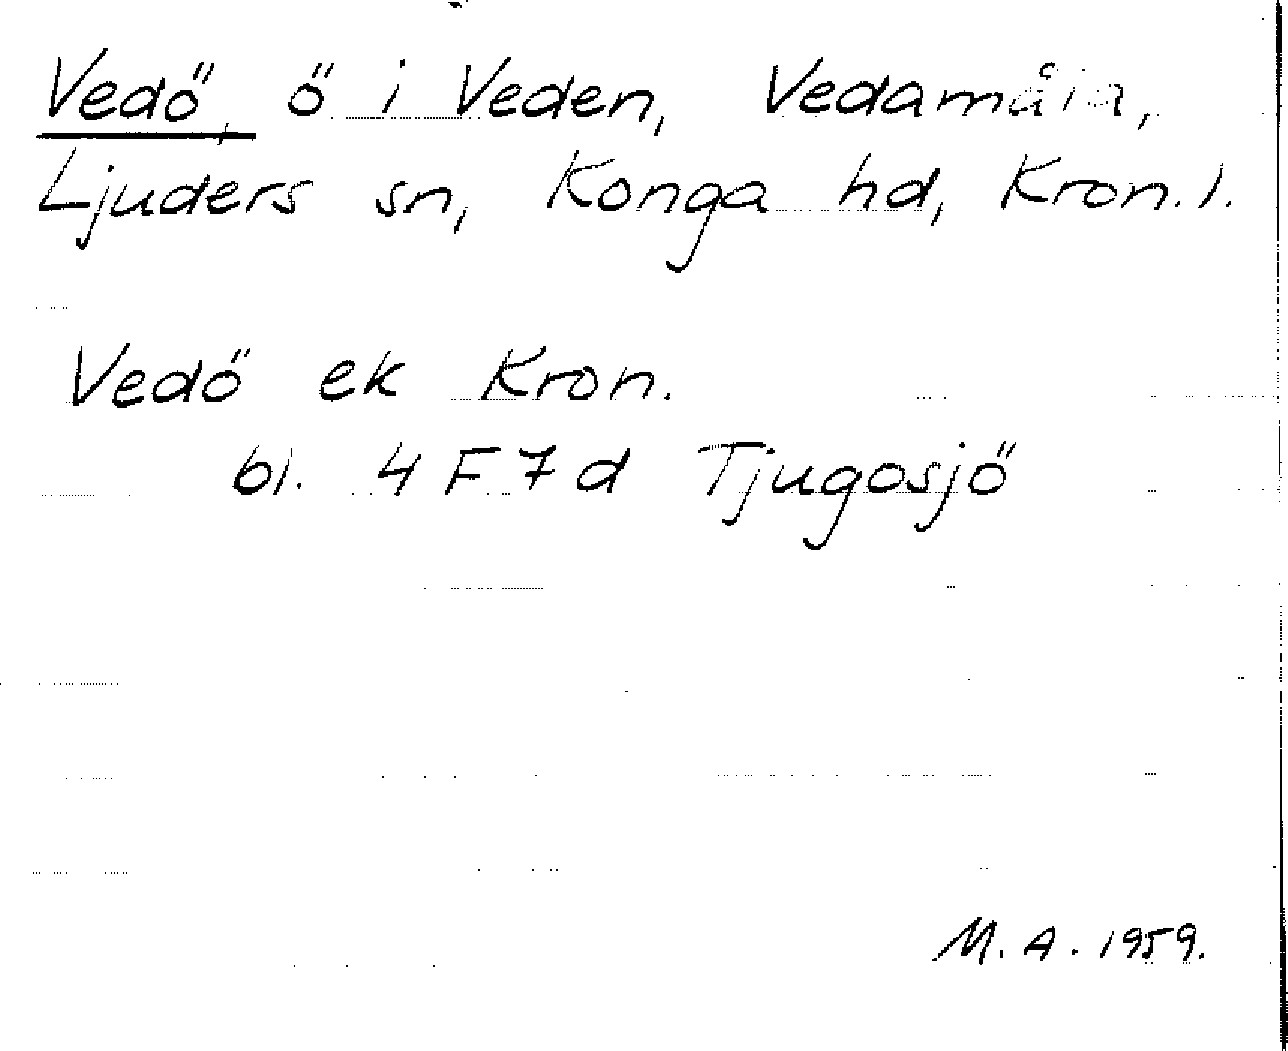 Vedö, ö i Veden, Vedamåla,
Ljuders sn, Konga hd, Kron. l.
Vedö ek Kron.
bl. 4 F 7 d Tjugosjö
M. A. 1959.